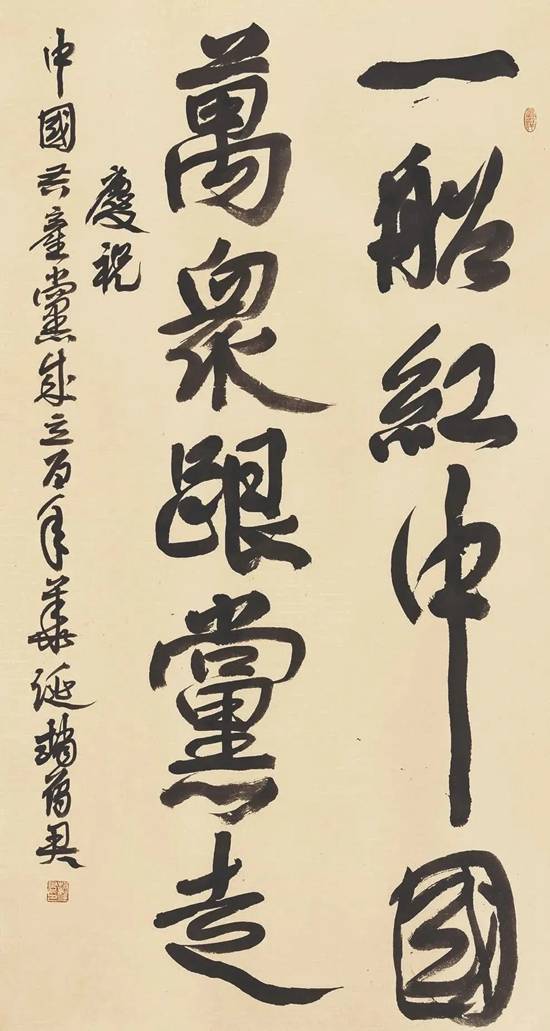 一船紅中國
萬衆跟黨走
慶祝
中國共產黨成立百年華誕趙